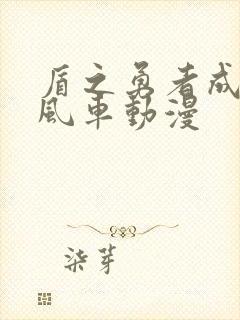 盾之勇者成
風車動漫
柒芽